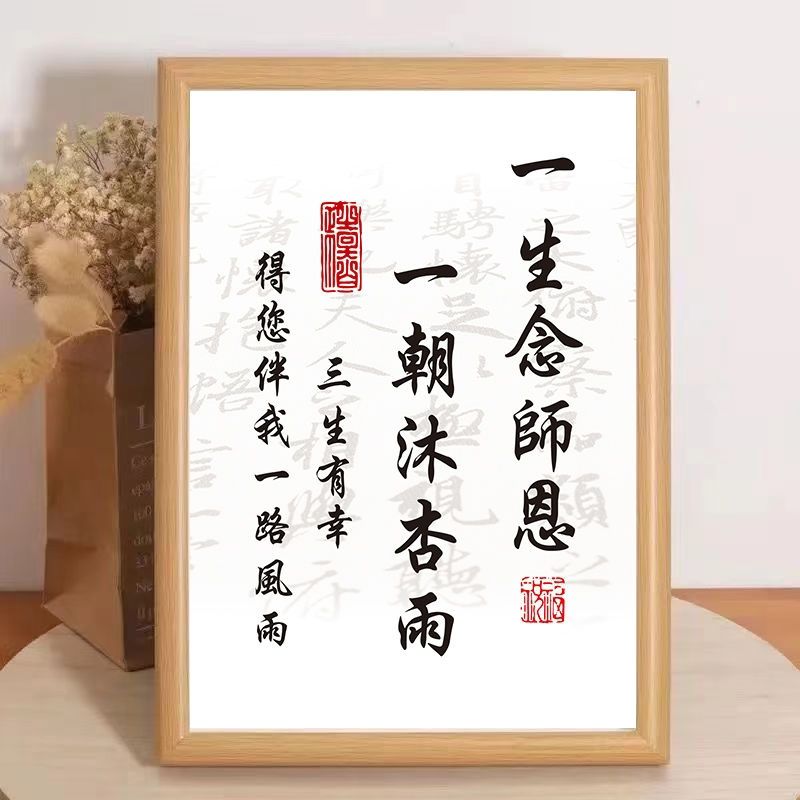 一生念師恩
一朝沐杏雨
三生有幸
得您伴我一路風雨